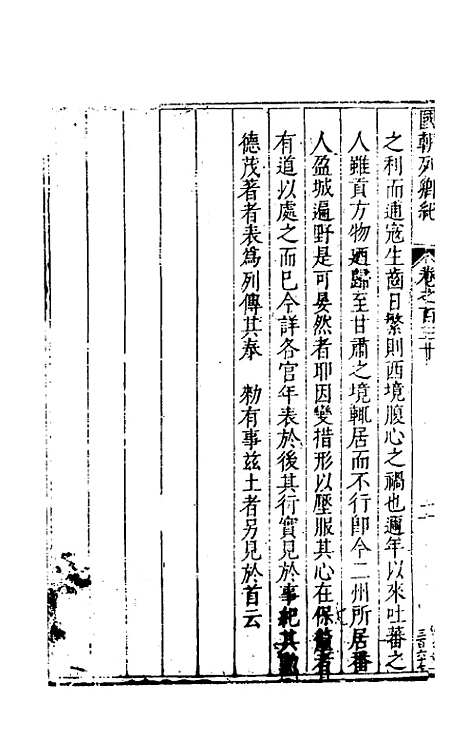 國朝列卿紀 卷之百三十
之利而逋寇生齒日繁則西境腹心之禍也邇年以來吐蕃之
人雖貢方物廼歸至甘肅之境輒居而不行卽今二州所居番
人盈城遍野是可晏然者耶因變措形以壓服其心在保釐者
有道以處之而已今詳各官年表於後其行實見於事紀其勳
德茂著者表爲列傳其奉 勑有事兹土者另見於首云